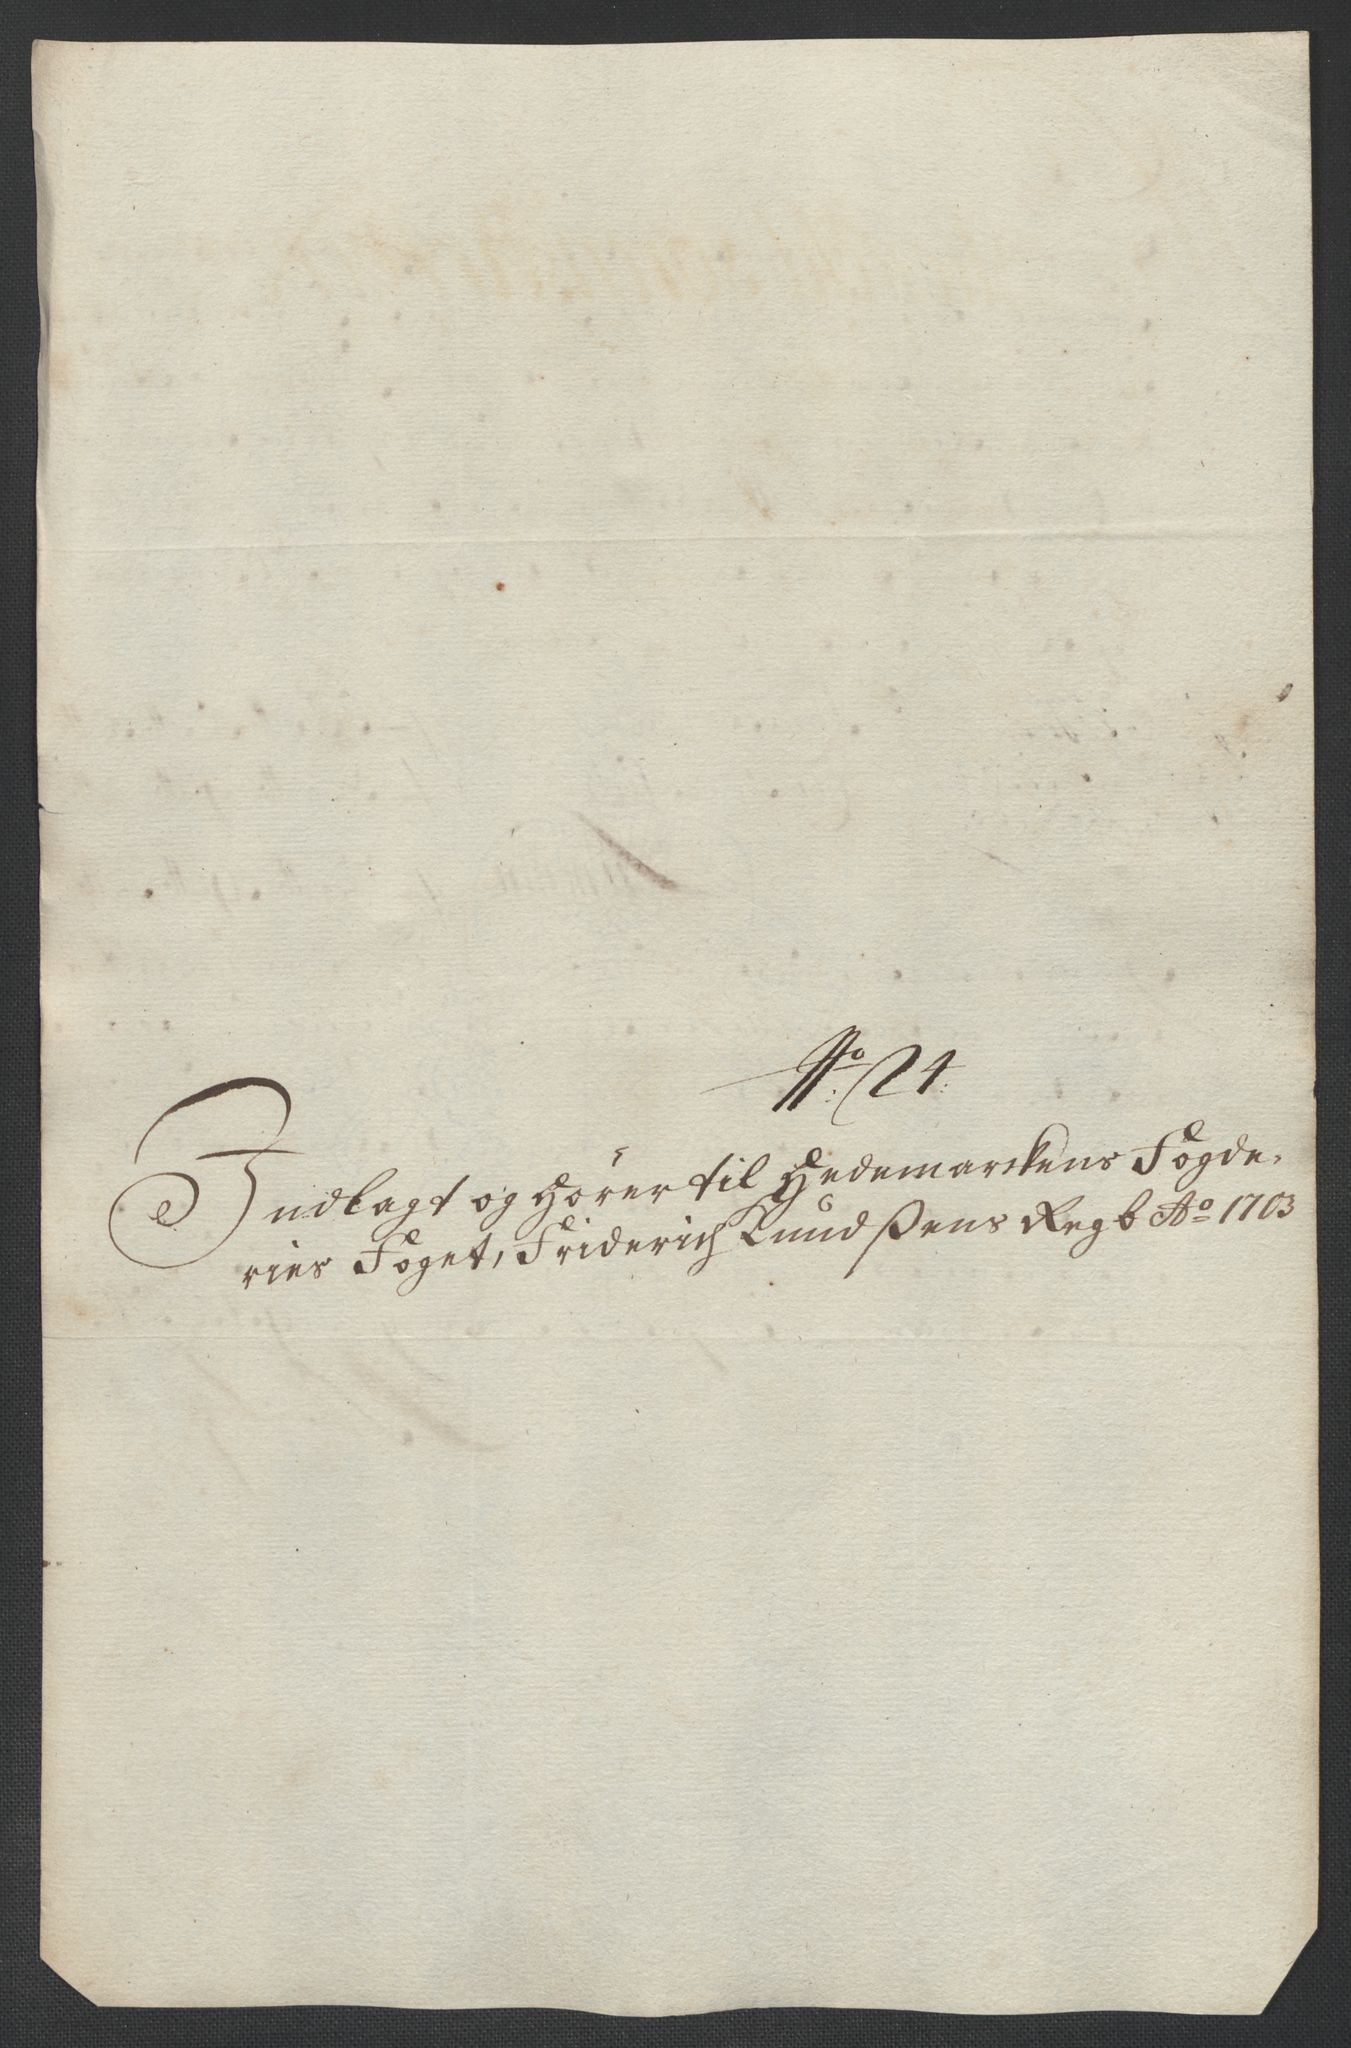 No: 24.
Indlagt og hörer til Hedemarckens Fogde-
ries Foget, Friderich Knudßens Regb Ao 1703